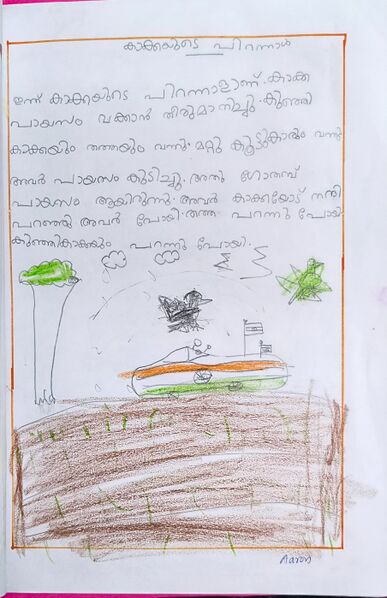 കാക്കയുടെ പിറന്നാൾ
ഇന്ന് കാക്കയുടെ പിറന്നാളാണ്. കാക്ക
പായസം വക്കാൻ തീരുമാനിച്ചു. കുഞ്ഞി
കാക്കയും തത്തയും വന്നു. മറ്റു കൂട്ടുകാരും വന്നു
അവർ പായസം കുടിച്ചു. അതു ഗോതമ്പ്
പായസം ആയിരുന്നു. അവർ കാക്കയോട് നന്ദി
പറഞ്ഞു അവർ പോയി. തത്ത പറന്നു പോയി.
കുഞ്ഞികാക്കയും പറന്നു പോയി.
Aaron